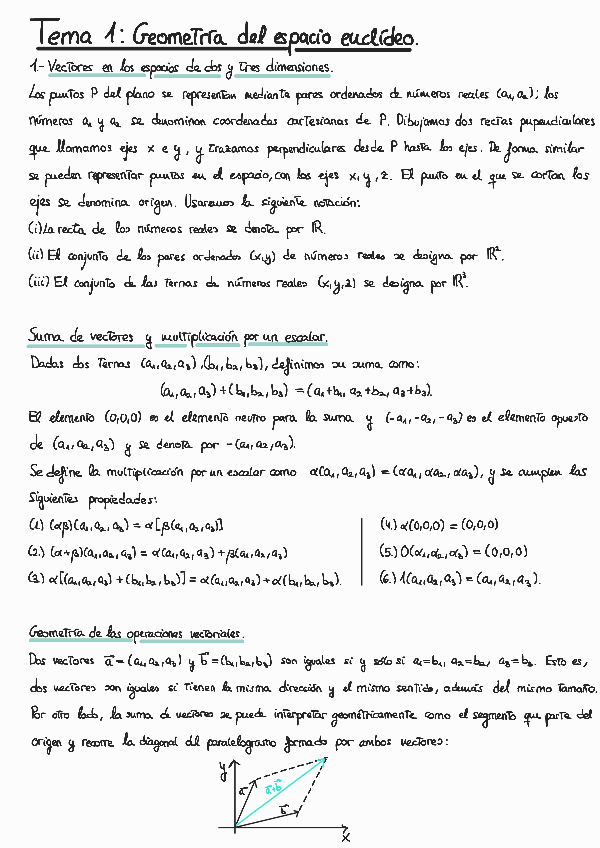 Tema 1: Geometría del espacio euclídeo.
1.- Vectores en los espacios de dos y tres dimensiones.
Los puntos P del plano se representan mediante pares ordenados de números reales (a₁,a₂); los
números a₁ y a₂ se denominan coordenadas cartesianas de P. Dibujamos dos rectas perpendiculares
que llamamos ejes x e y, y trazamos perpendiculares desde P hasta los ejes. De forma similar
se pueden representar puntos en el espacio, con los ejes x, y, z. El punto en el que se cortan los
ejes se denomina origen. Usaremos la siguiente notación:
(i) La recta de los números reales se denota por ℝ.
(ii) El conjunto de los pares ordenados (x,y) de números reales se designa por ℝ².
(iii) El conjunto de las ternas de números reales (x,y,z) se designa por ℝ³.
Suma de vectores y multiplicación por un escalar.
Dadas dos ternas (a₁,a₂,a₃), (b₁,b₂,b₃), definimos su suma como:
(a₁,a₂,a₃)+(b₁,b₂,b₃) = (a₁+b₁, a₂+b₂, a₃+b₃).
El elemento (0,0,0) es el elemento neutro para la suma y (-a₁,-a₂,-a₃) es el elemento opuesto
de (a₁,a₂,a₃) y se denota por -(a₁,a₂,a₃).
Se define la multiplicación por un escalar como α(a₁,a₂,a₃) = (αa₁,αa₂,αa₃), y se cumplen las
siguientes propiedades:
(1.) (αβ)(a₁,a₂,a₃) = α[β(a₁,a₂,a₃)]
(2.) (α+β)(a₁,a₂,a₃) = α(a₁,a₂,a₃)+β(a₁,a₂,a₃)
(3.) α[(a₁,a₂,a₃)+(b₁,b₂,b₃)] = α(a₁,a₂,a₃)+α(b₁,b₂,b₃).
(4.) α(0,0,0) = (0,0,0)
(5.) 0(α₁,α₂,α₃) = (0,0,0)
(6.) 1(a₁,a₂,a₃) = (a₁,a₂,a₃).
Geometría de las operaciones vectoriales.
Dos vectores a⃗=(a₁,a₂,a₃) y b⃗=(b₁,b₂,b₃) son iguales si y sólo si a₁=b₁, a₂=b₂, a₃=b₃. Esto es,
dos vectores son iguales si tienen la misma dirección y el mismo sentido, además del mismo tamaño.
Por otro lado, la suma de vectores se puede interpretar geométricamente como el segmento que parte del
origen y recorre la diagonal del paralelogramo formado por ambos vectores:
y
a⃗
a⃗+b⃗
b⃗
x